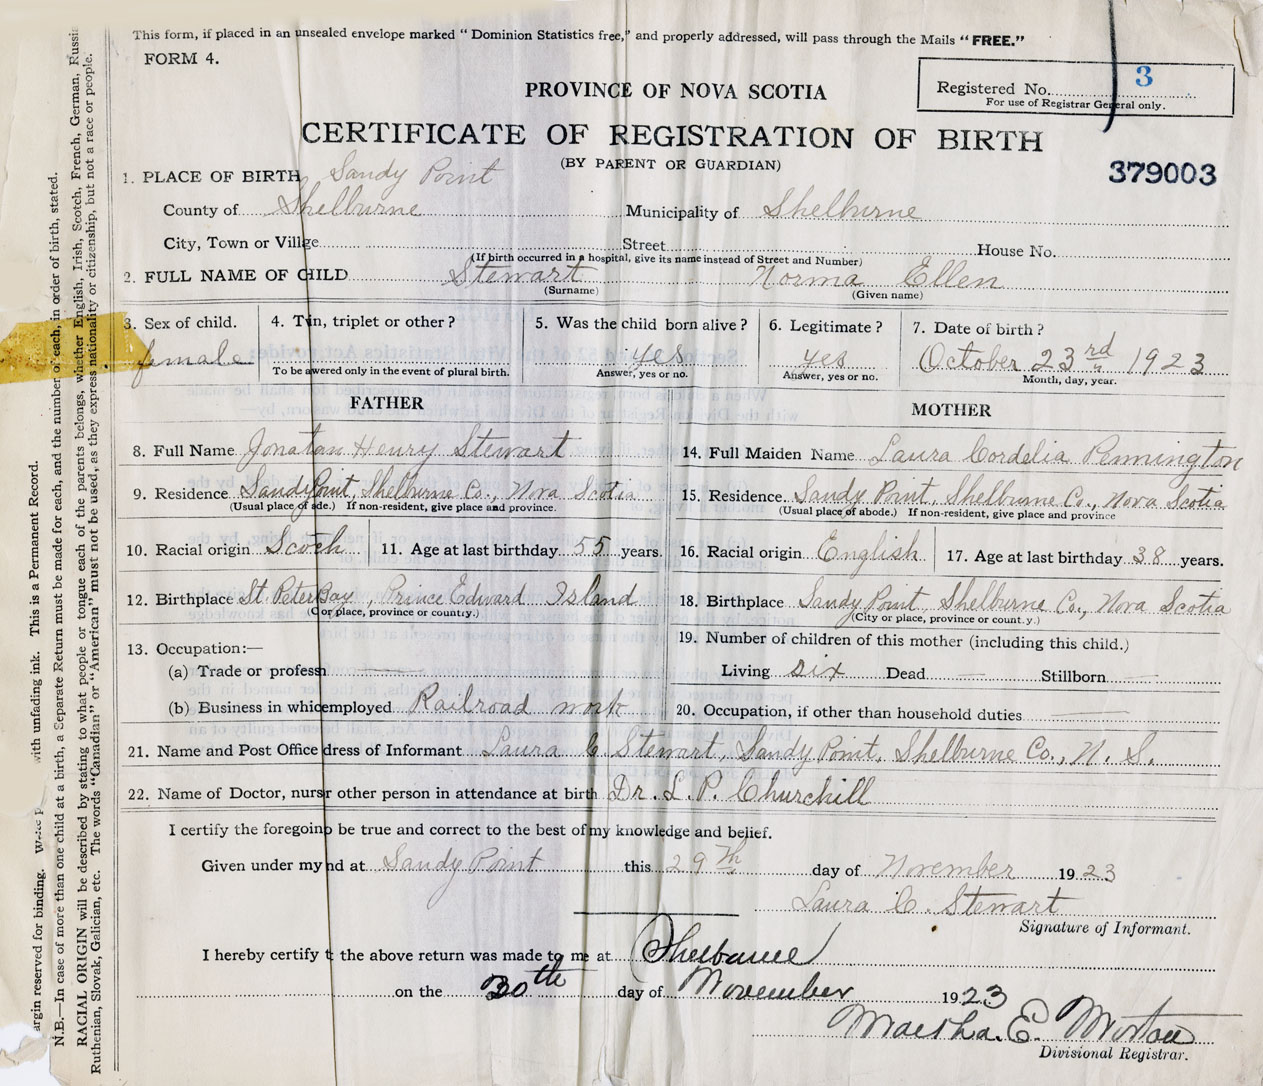 This form, if placed in an unsealed envelope marked “Dominion Statistics free,” and properly addressed, will pass through the Mails “FREE.”
FORM 4.
Registered No. 3
For use of Registrar General only.
PROVINCE OF NOVA SCOTIA
CERTIFICATE OF REGISTRATION OF BIRTH
(BY PARENT OR GUARDIAN)
379003
1. PLACE OF BIRTH Sandy Point
County of Shelburne Municipality of Shelburne
City, Town or Villge Street House No.
(If birth occurred in a hospital, give its name instead of Street and Number)
2. FULL NAME OF CHILD Stewart Norma Ellen
(Surname) (Given name)
3. Sex of child. female
4. Tin, triplet or other?
To be awered only in the event of plural birth.
5. Was the child born alive? yes
Answer, yes or no.
6. Legitimate? yes
Answer, yes or no.
7. Date of birth? October 23rd 1923
Month, day, year.
FATHER
8. Full Name Jonatan Henry Stewart
9. Residence Sandy Point, Shelburne Co., Nova Scotia
(Usual place of ade.) If non-resident, give place and province.
10. Racial origin Scoch 11. Age at last birthday 55 years.
12. Birthplace St Peter Bay, Prince Edward Island
(C or place, province or country.)
13. Occupation:—
(a) Trade or professn —
(b) Business in whicemployed Railroad work
MOTHER
14. Full Maiden Name Laura Cordelia Pennington
15. Residence. Sandy Point, Shelburne Co., Nova Scotia
(Usual place of abode.) If non-resident, give place and province
16. Racial origin English 17. Age at last birthday 38 years.
18. Birthplace Sandy Point, Shelburne Co., Nova Scotia
(City or place, province or count.y.)
19. Number of children of this mother (including this child.)
Living six Dead — Stillborn —
20. Occupation, if other than household duties —
21. Name and Post Office dress of Informant Laura C Stewart, Sandy Point, Shelburne Co., N. S.
22. Name of Doctor, nursr other person in attendance at birth Dr. L. P. Churchill
I certify the foregoinp be true and correct to the best of my knowledge and belief.
Given under my nd at Sandy Point this 29th day of November 1923
Laura C. Stewart
Signature of Informant.
I hereby certify t the above return was made to me at Shelburne
on the 30th day of November 1923
Martha. E. Morton
Divisional Registrar.
argin reserved for binding. with unfading ink. This is a Permanent Record.
N.B.—In case of more than one child at a birth, a Separate Return must be made for each, and the number of each, in order of birth, stated.
RACIAL ORIGIN will be described by stating to what people or tongue each of the parents belongs, whether English, Irish, Scotch, French, German, Russia
Ruthenian, Slovak, Galician, etc. The words “Canadian” or “American” must not be used, as they express nationality or citizenship, but not a race or people.